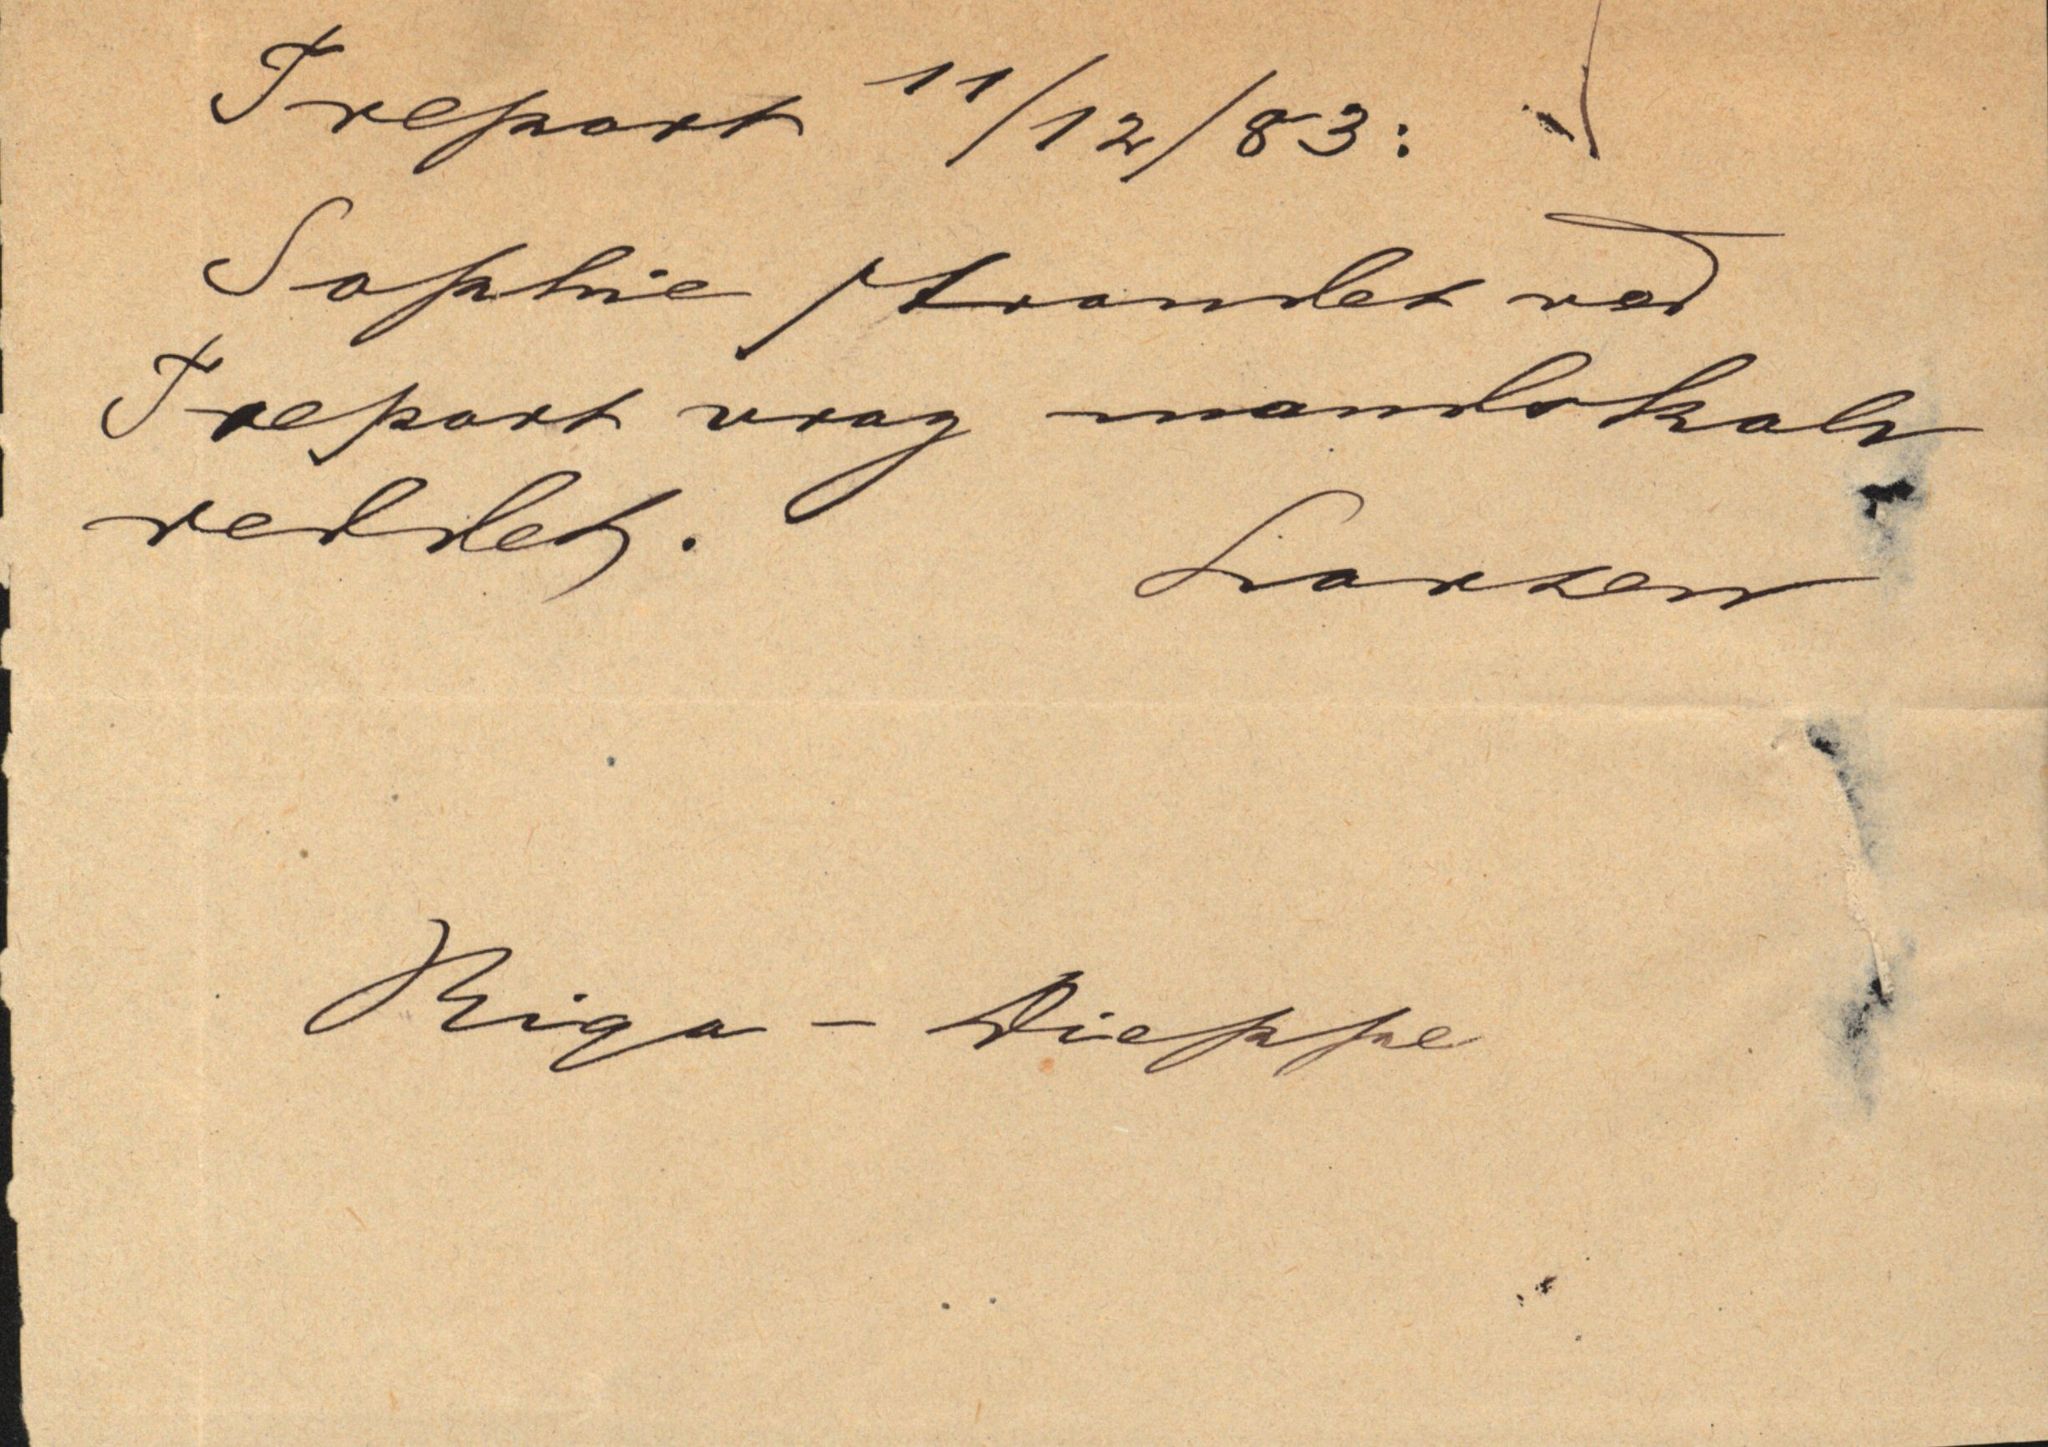 Treport 11/12/83:
Sophie strandet ved
Treport vrag mandskab
reddet.
Larsen
Riga - Dieppe